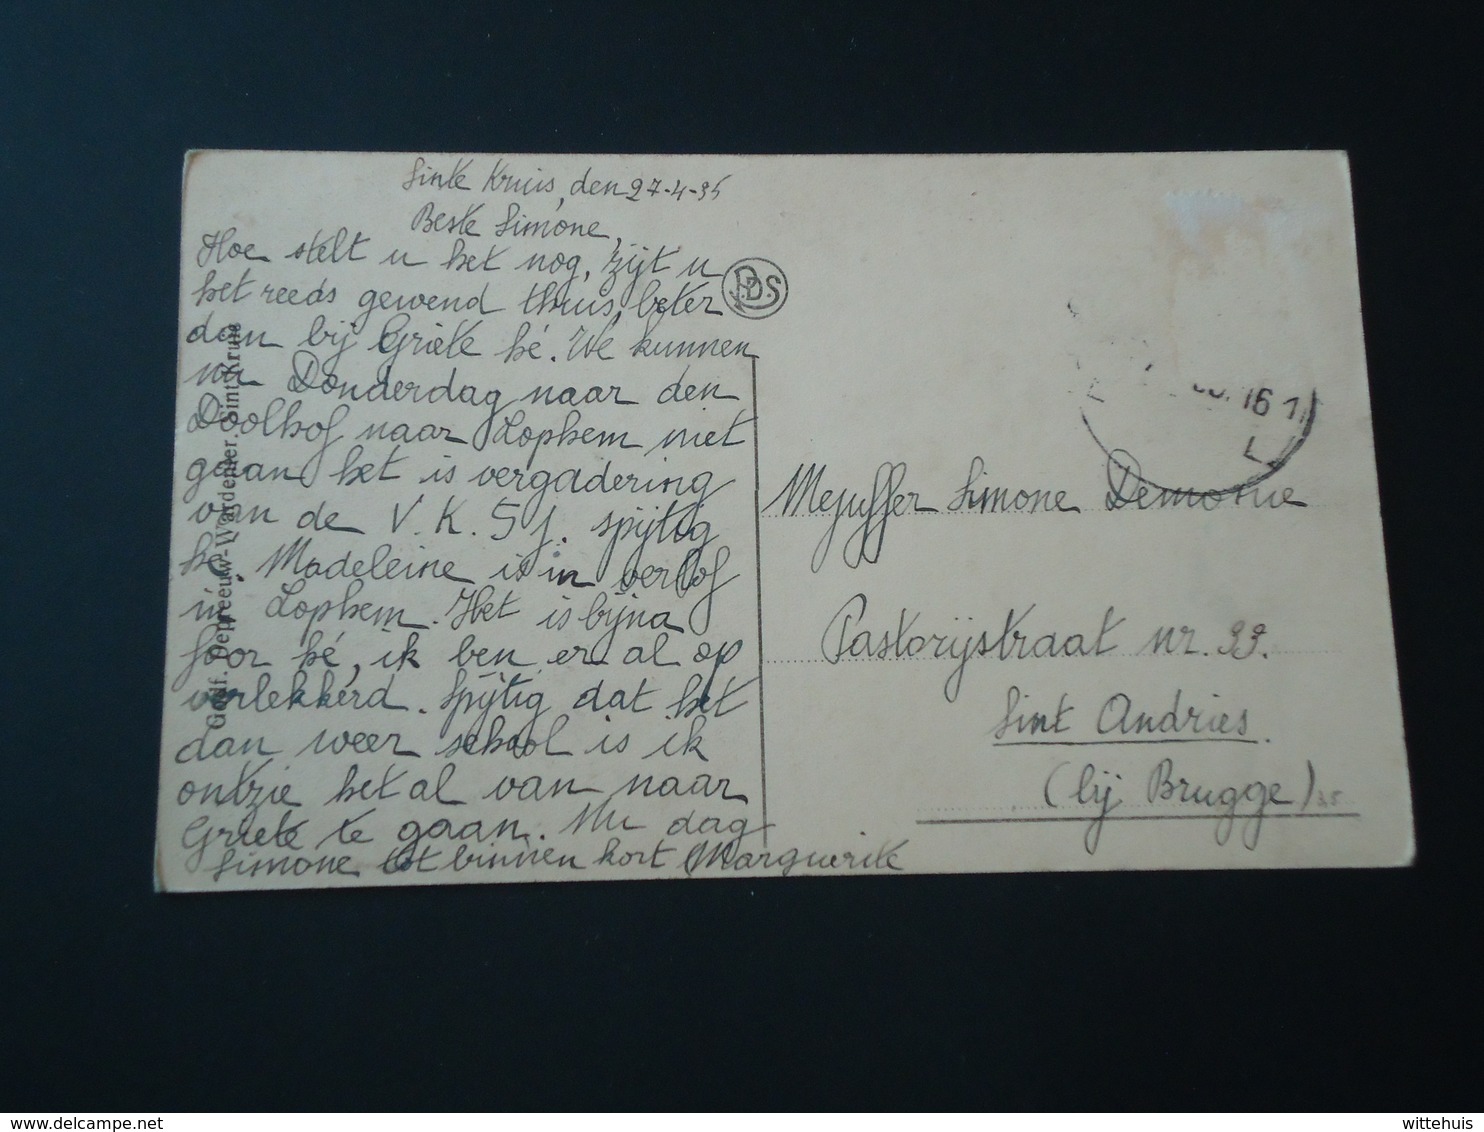 Sinte Kruis, den 27-4-35
Beste Simone,
Hoe stelt u het nog, zijt u
het reeds gewend thuis, beter
dan bij Griete hé. We kunnen
nu Donderdag naar den
Doolhof naar Lophem niet
gaan het is vergadering
van de V. K. S J. spijtig
hé. Madeleine is in verlof
in Lophem. Het is bijna
foor hé, ik ben er al op
verlekkerd. Spijtig dat het
dan weer school is ik
ontzie het al van naar
Griete te gaan. Nu dag
Simone tot binnen kort Marguerite
Gedf. Depreeuw-Wardenier. Sint Kruis
PDS
16
Mejuffer Simone Demonie
Pastorijstraat nr. 39.
Sint Andries
(bij Brugge)
35
wittehuis